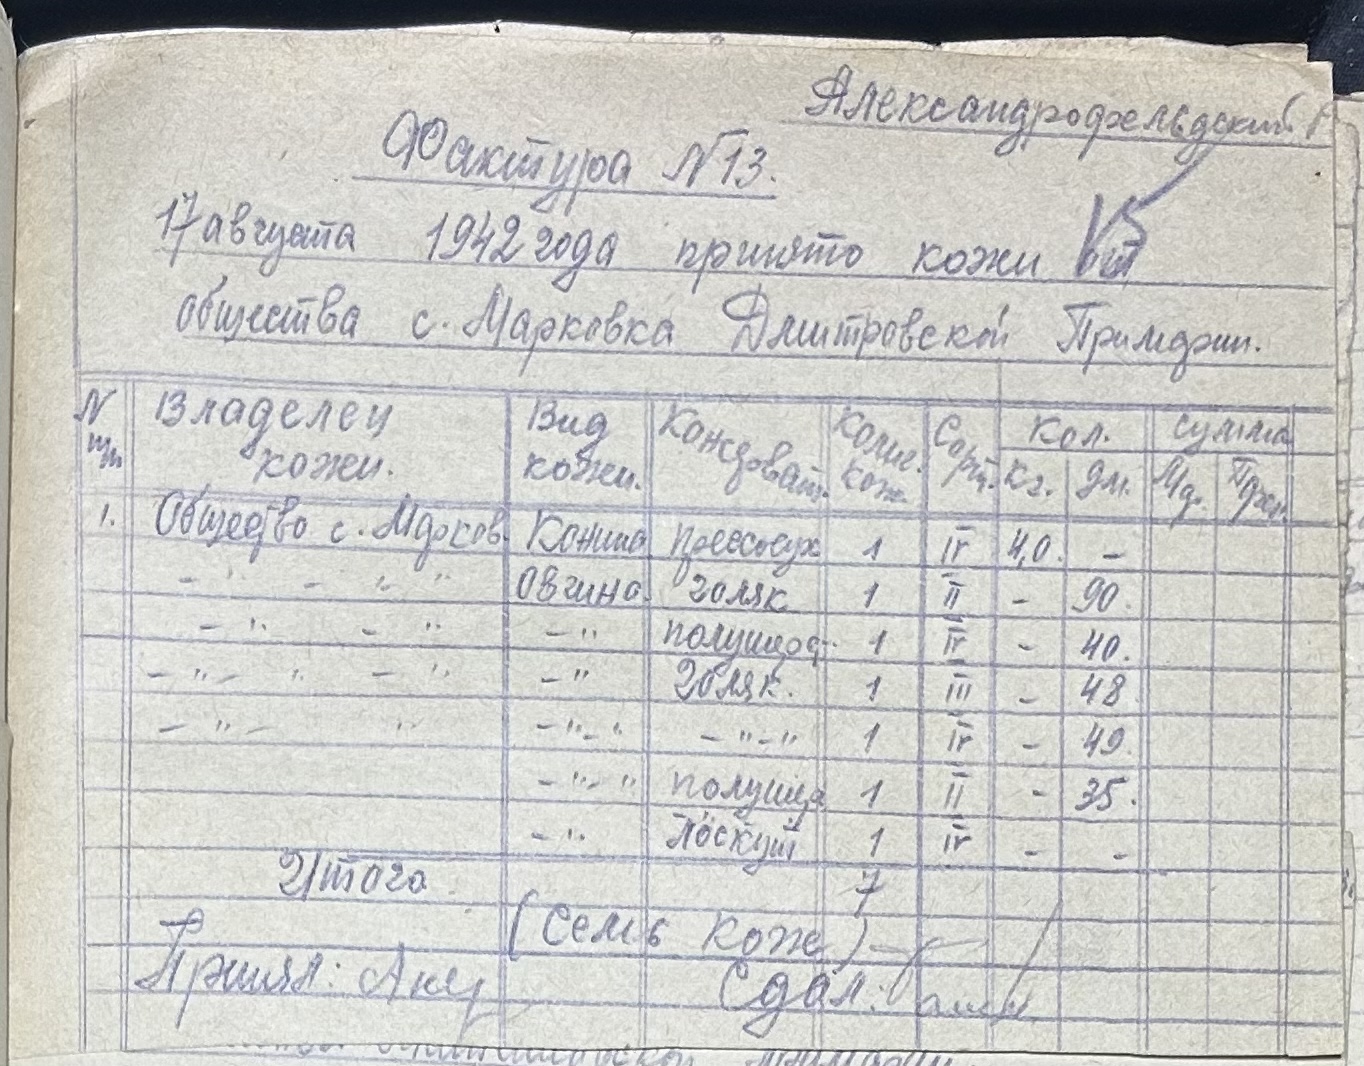 Александрофельдский
Фактура N 13.
17 августа 1942 года принято кожи от
общества с. Марковка Дмитровской Примэрии.
N п/п Владелец кожи. Вид кожи. Колич. кож Сорт. Кол. кг. дм. сумма
1. Общество с. Марков. Конина прессосух 1 IV 4,0. –
– " – " " Овчина. голяк 1 II - 90.
– " – " – " полушерст. 1 IV - 40.
– " – " – " – " голяк. 1 III - 48
– " – " – " – " – " – " 1 IV - 49.
– " – " полушер 1 II - 35.
– " лоскут 1 IV - -
Итого 7
(Семь кож)
Принял: Сдал: